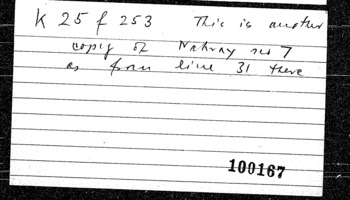 K 25 f 253 This is another
copy of Nahray no 7
as from line 31 there
100167